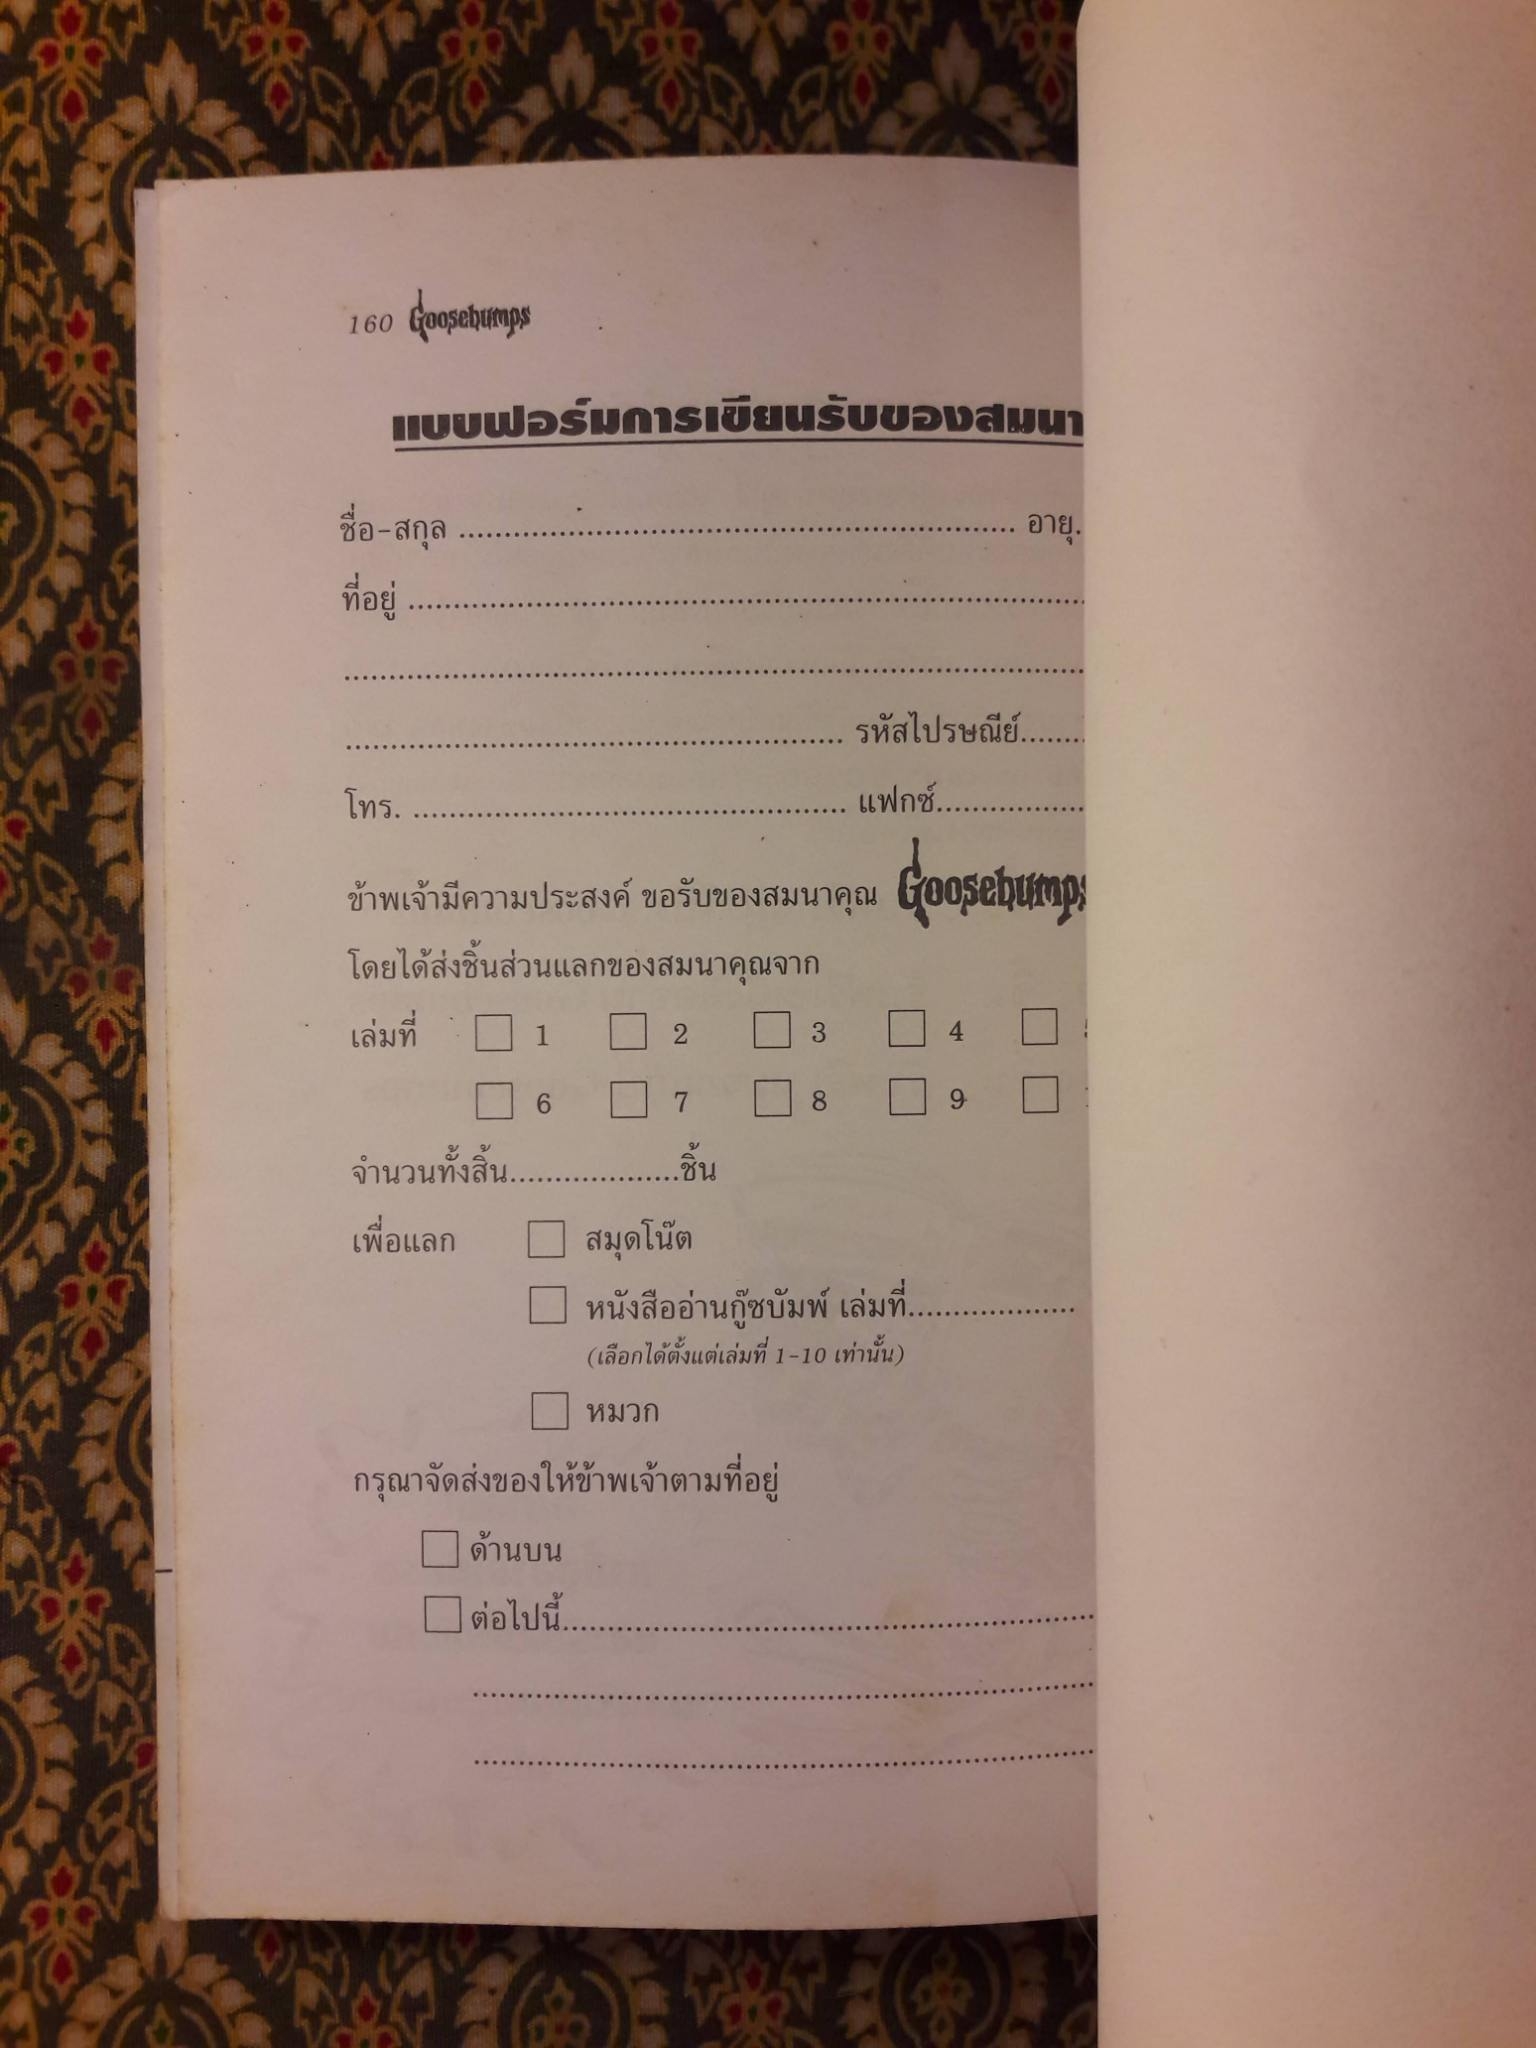 160 Goosebumps
แบบฟอร์มการเขียนรับของสมนา
ชื่อ-สกุล .............................................................. อายุ.
ที่อยู่ ...........................................................................
...................................................................................
....................................................... รหัสไปรษณีย์.......
โทร. ................................................ แฟกซ์................
ข้าพเจ้ามีความประสงค์ ขอรับของสมนาคุณ Goosebumps
โดยได้ส่งชิ้นส่วนแลกของสมนาคุณจาก
เล่มที่ □ 1 □ 2 □ 3 □ 4 □
□ 6 □ 7 □ 8 □ 9 □
จำนวนทั้งสิ้น...................ชิ้น
เพื่อแลก □ สมุดโน๊ต
□ หนังสืออ่านกู๊ซบัมพ์ เล่มที่...................
(เลือกได้ตั้งแต่เล่มที่ 1-10 เท่านั้น)
□ หมวก
กรุณาจัดส่งของให้ข้าพเจ้าตามที่อยู่
□ ด้านบน
□ ต่อไปนี้...........................................................
.....................................................................
.....................................................................